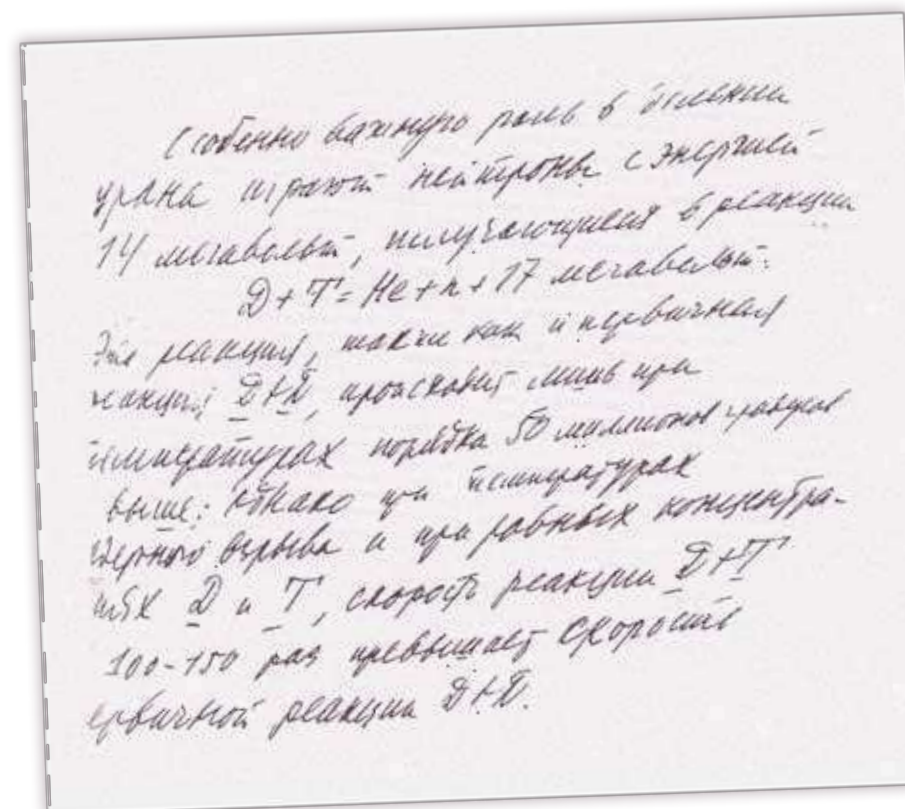 Особенно важную роль в делении
урана играют нейтроны с энергией
14 мегавольт, получающиеся в реакции
Д + Т = He + n + 17 мегавольт.
Эта реакция, также как и первичная
реакция Д+Д, происходит лишь при
температурах порядка 50 миллионов градусов
выше. Однако при температурах
ядерного взрыва и при равных концентра-
Д и Т, скорость реакции Д+Т
100-150 раз превышает скорость
ервичной реакции Д+Д.